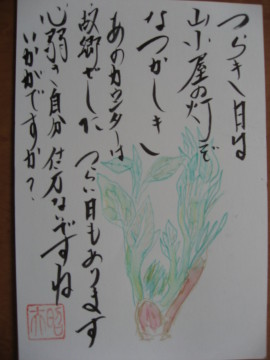 つらき日は
山小屋の灯ぞ
なつかしき
あのカウンターは
故郷でした
つらい日もあります
心弱き自分 仕方ないですね
いかがですか?